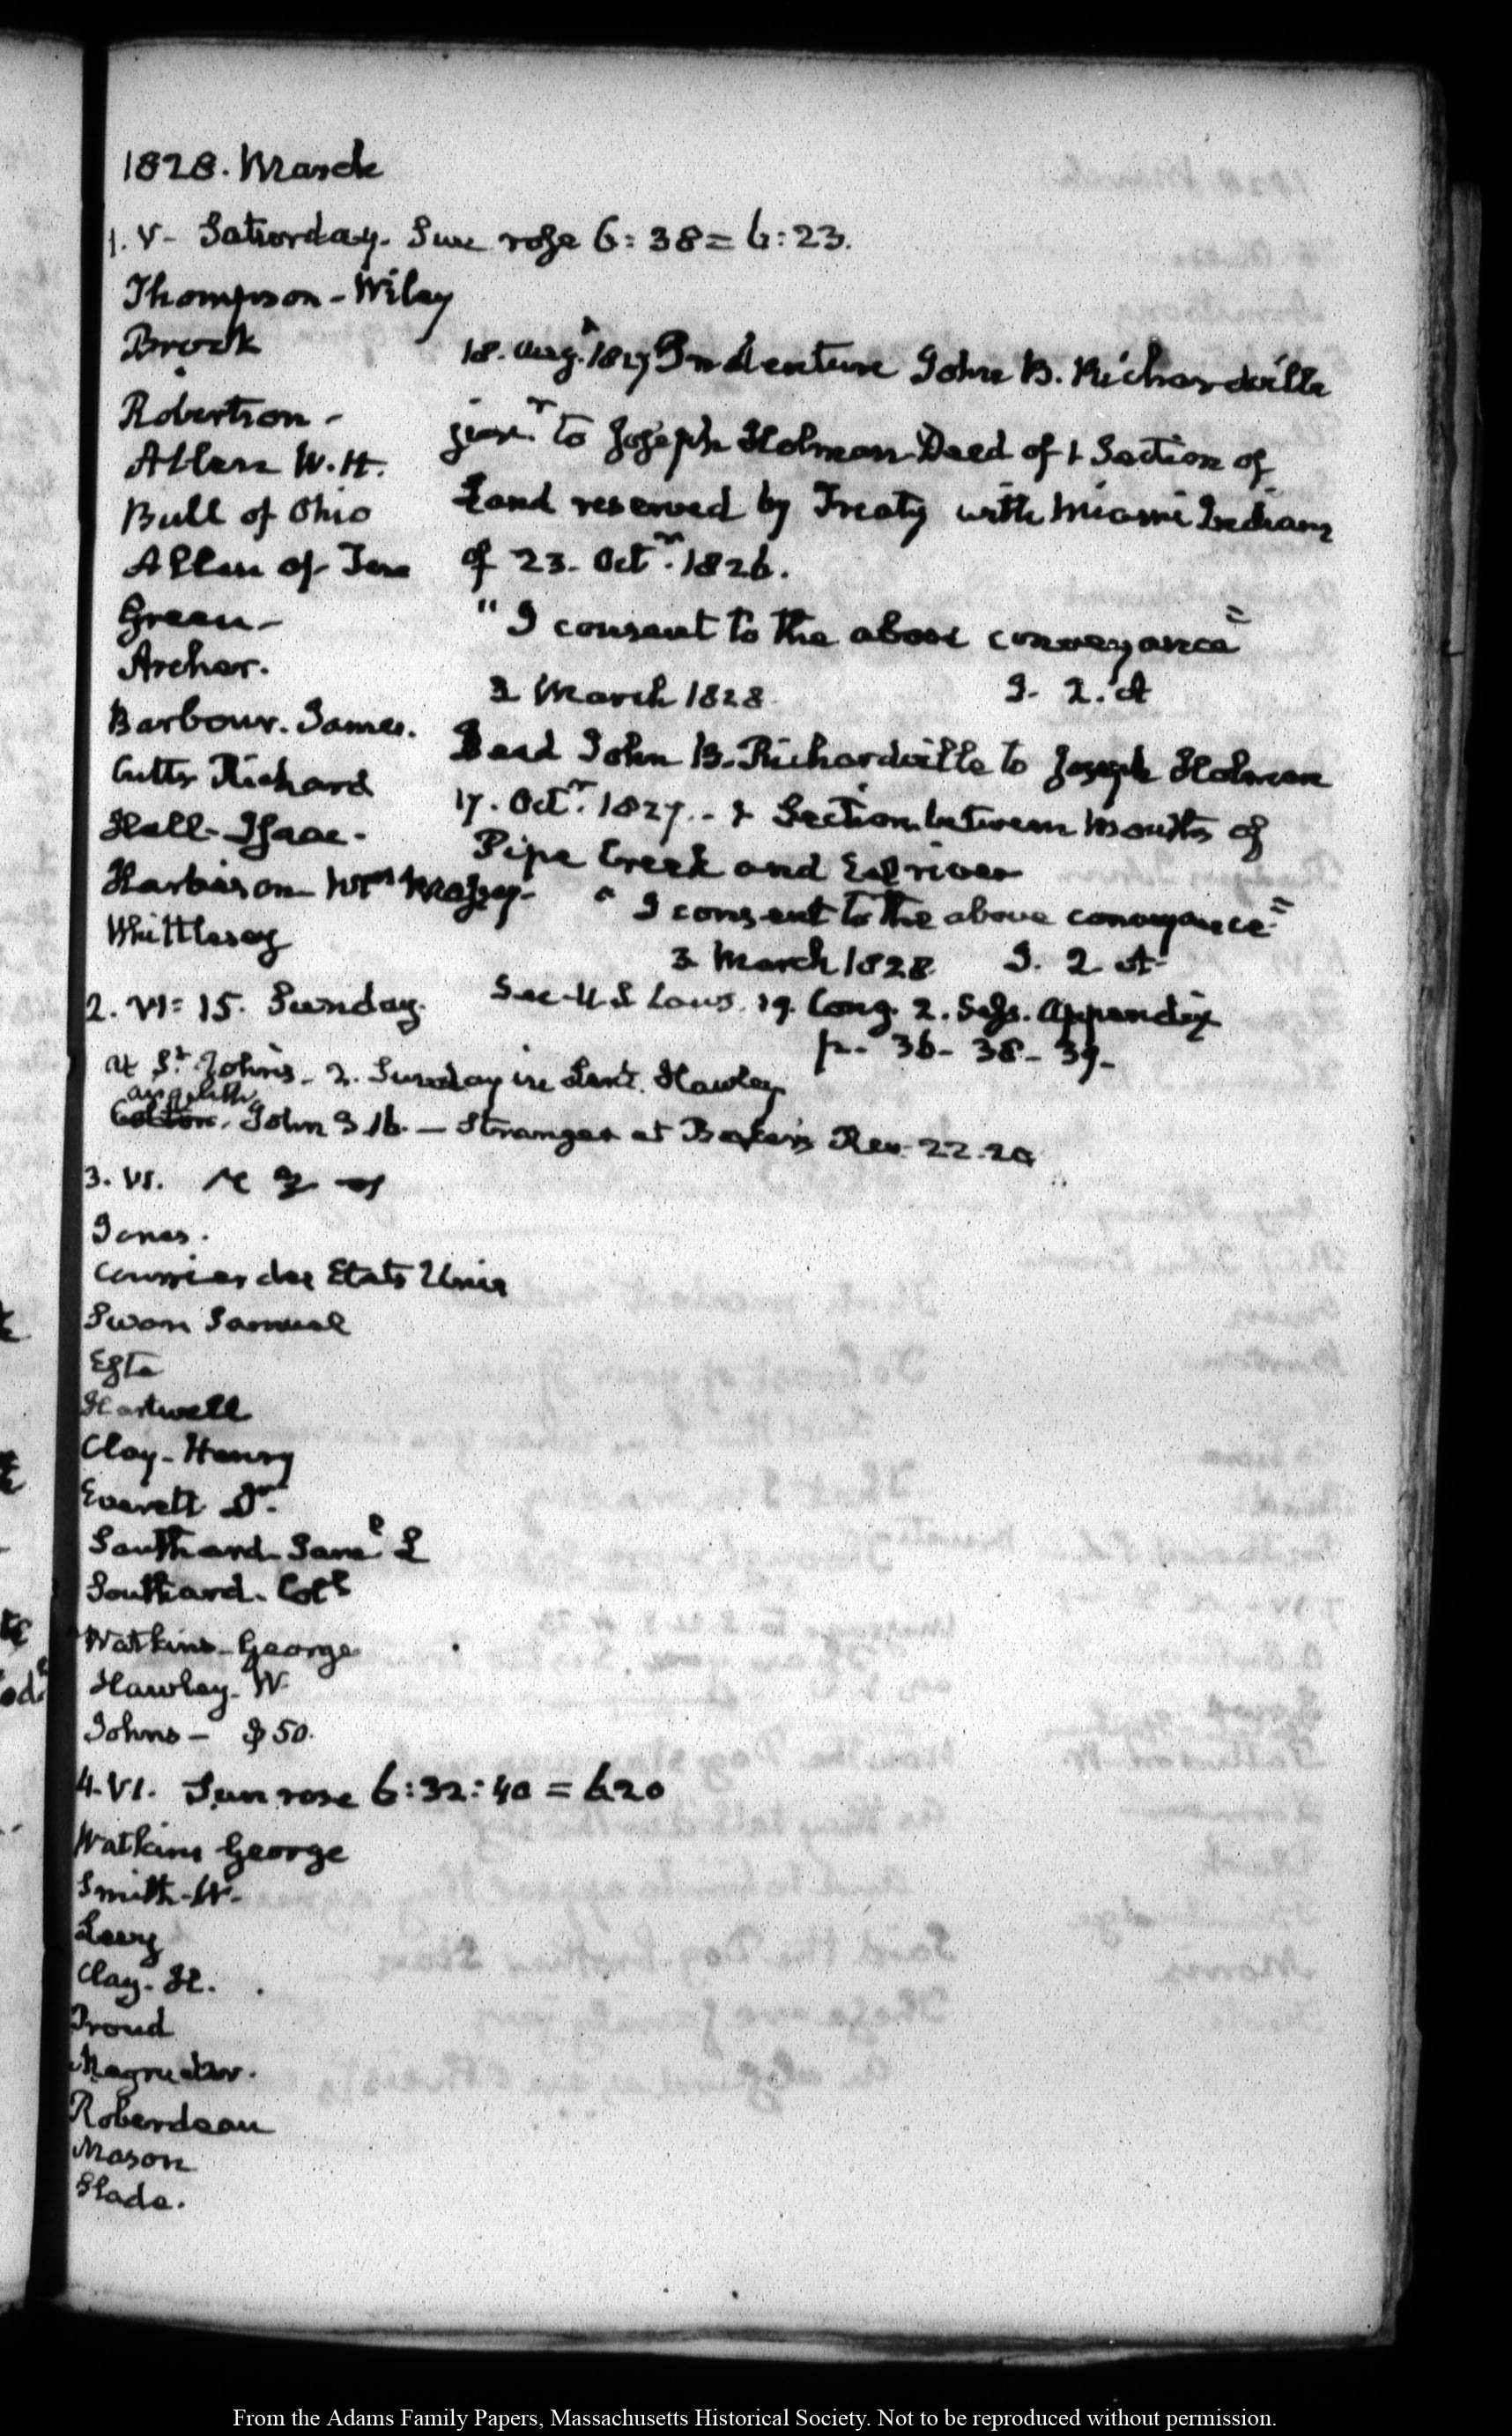 1828. March
1. V- Saturday. Sun rose 6:38=6:23.
Thompson-Wiley
Brook
Robertson-
Allen W.H.
Bull of Ohio
Allen of Ten
Green-
Archer.
Barbour. James.
Cutts Richard
Hall-Isaac-
Harbison Wm
Whittlesey
18. Augt. 1827 Indenture John B. Richardville
junr. to Joseph Holman Deed of 1 Section of
Land reserved by Treaty with Miami Indians
of 23. Octr. 1826.
"I consent to the above conveyance"
3 March 1828. J. Q. A
Deed John B. Richardville to Joseph Holman
17. Octr. 1827.- 2 Section between mouths of
Pipe Creek and Eel river
"I consent to the above conveyance"
3 March 1828 J. Q A-
See U S Laws. 19. Cong. 2. Sess. Appendix
p.- 36- 38- 39-
2. VI: 15. Sunday.
at St. Johns- 2. Sunday in Lent. Hawley
John 3.16.- Stranger at Baker's Rev. 22.20
3. VI.
Jones.
Courrier des Etats Unis
Swan Samuel
Este
Hartwell
Clay-Henry
Everett Dr.
Southard Saml. L
Southard. Coll
Watkins-George
Hawley. W.
Johns- $50.
4. VI. Sun rose 6:32:40 = 620
Watkins George
Smith-W-
Leery
Clay. H.
Proud
Magruder.
Roberdeau
Mason
Slade.
From the Adams Family Papers, Massachusetts Historical Society. Not to be reproduced without permission.